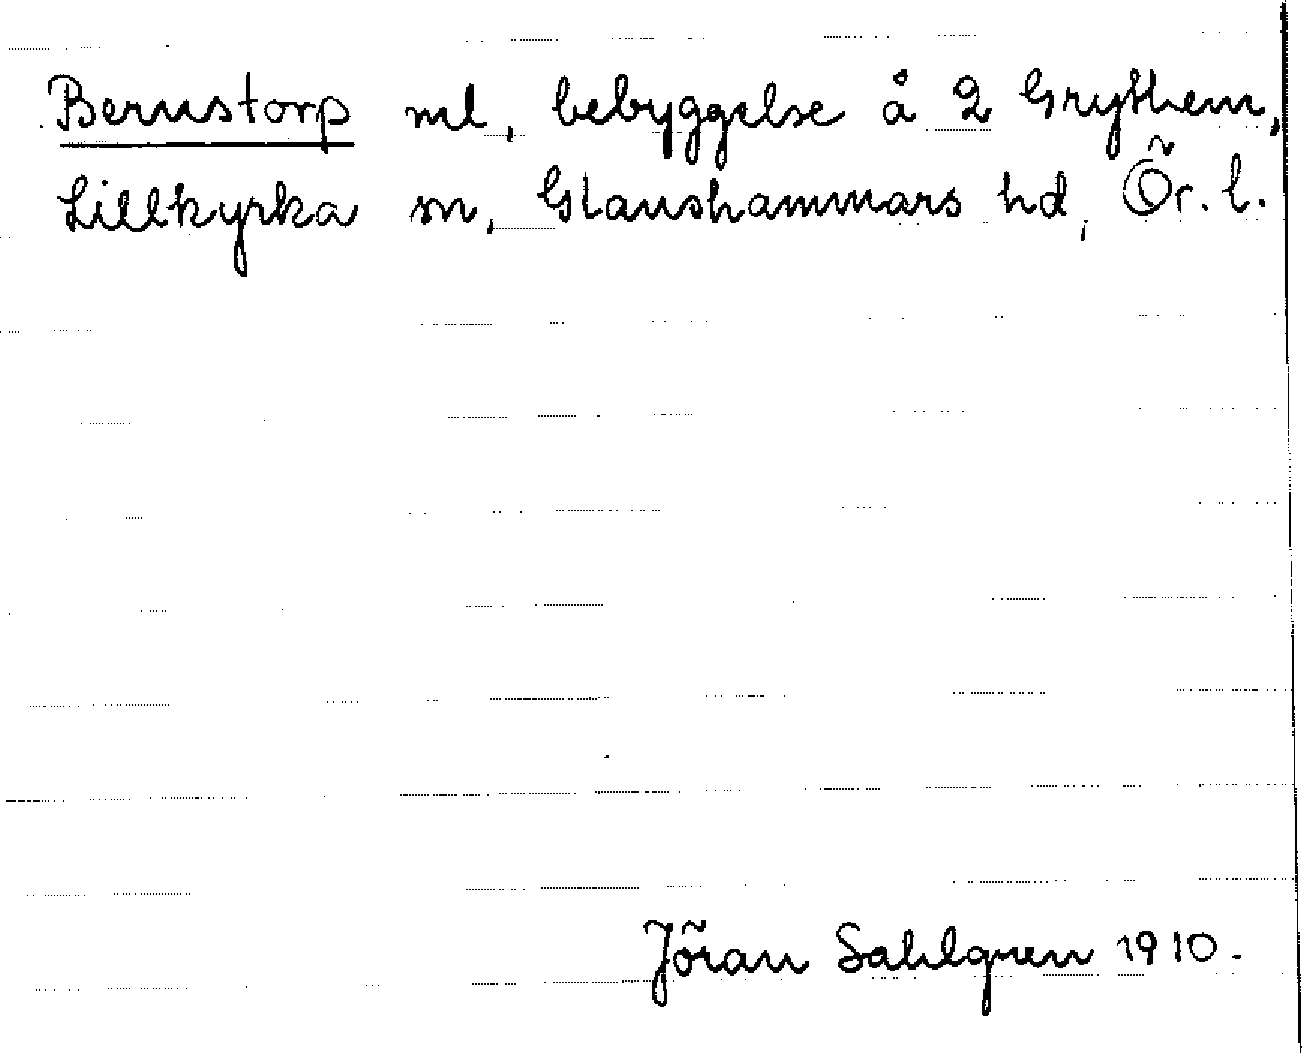 Bernstorp ml, bebyggelse å 2 Grythem,
Lillkyrka sn, Glanshammars hd, Ör. l.
Jöran Sahlgren 1910.